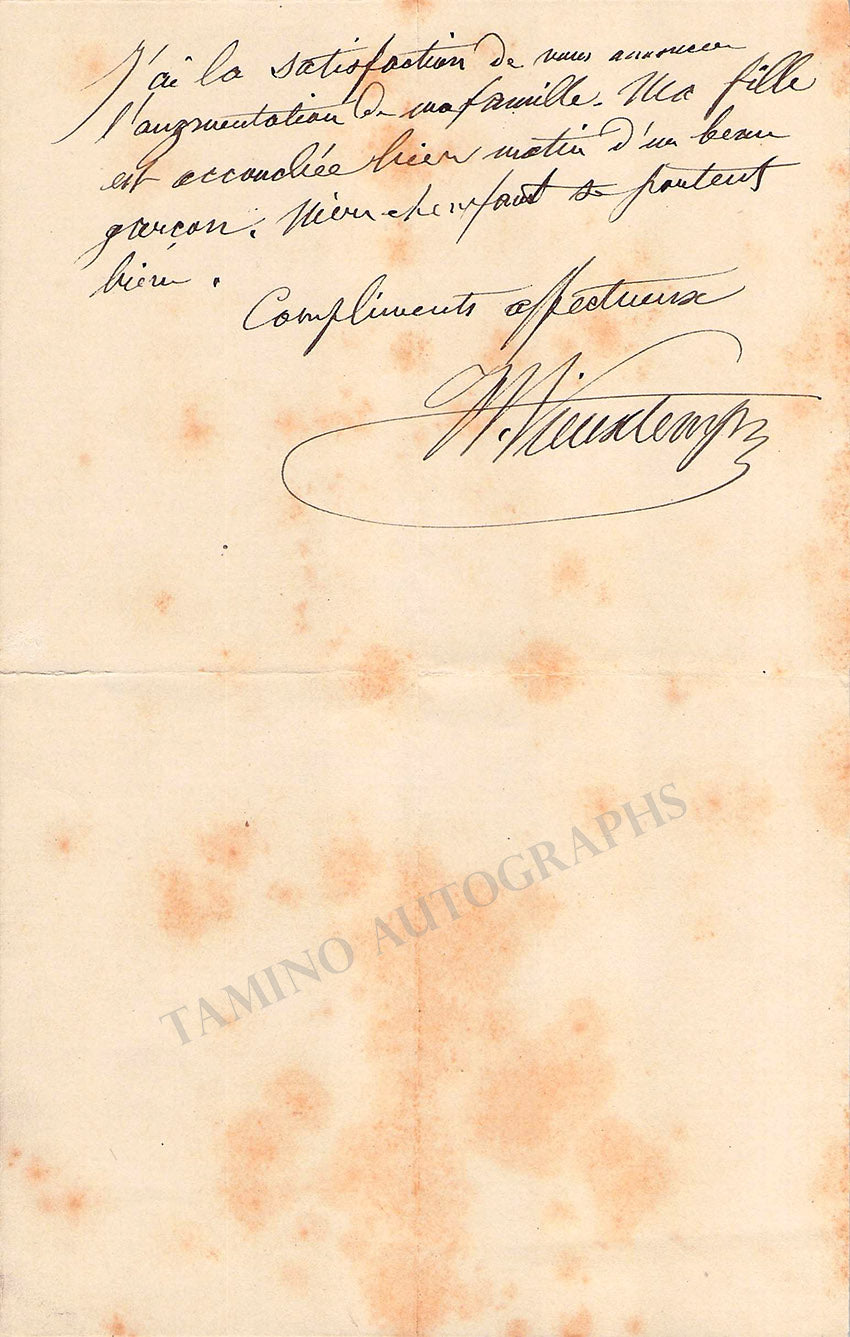 J'ai la satisfaction de vous annoncer
l'augmentation de ma famille. Ma fille
est accouchée hier matin d'un beau
garçon. Mère et enfant se portent
bien.
Compliments affectueux
H. Vieuxtemps
TAMINO AUTOGRAPHS